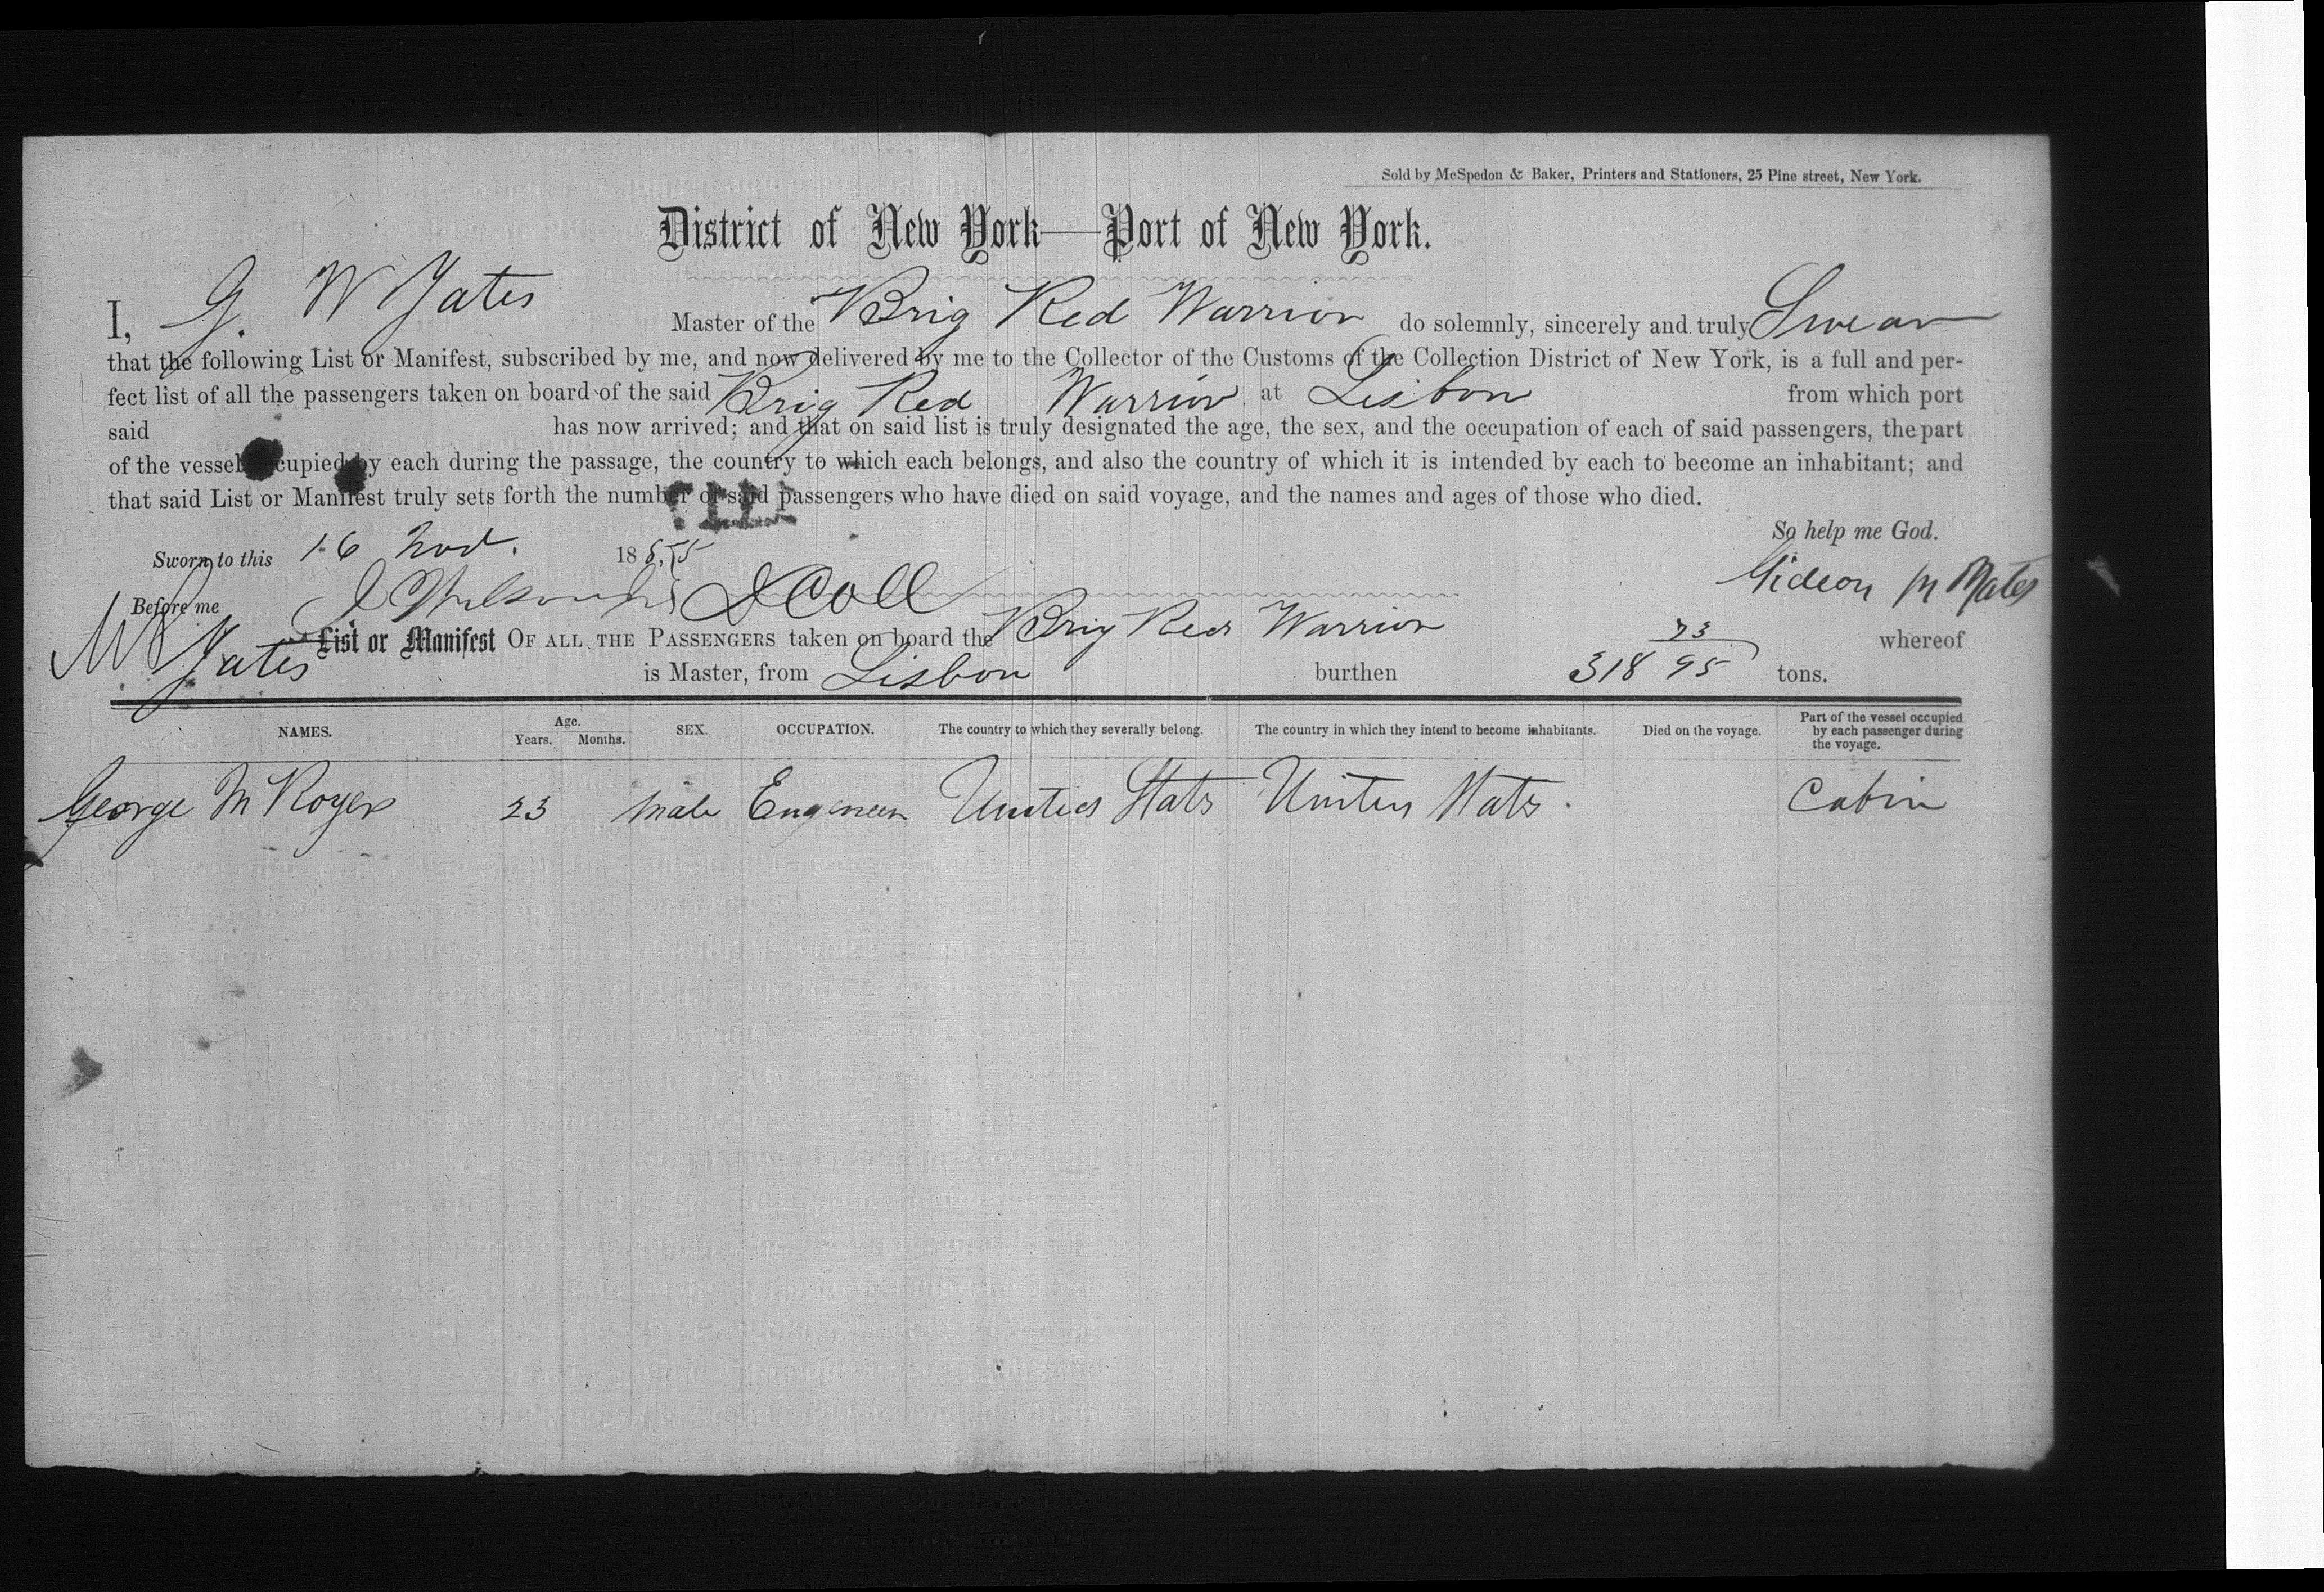 Sold by McSpedon & Baker, Printers and Stationers, 25 Pine street, New York.
District of New York—Port of New York.
I, G. W Yates Master of the Brig Red Warrior do solemnly, sincerely and truly Swear
that the following List or Manifest, subscribed by me, and now delivered by me to the Collector of the Customs of the Collection District of New York, is a full and per-
fect list of all the passengers taken on board of the said Brig Red Warrior at Lisbon from which port
said has now arrived; and that on said list is truly designated the age, the sex, and the occupation of each of said passengers, the part
of the vessel occupied by each during the passage, the country to which each belongs, and also the country of which it is intended by each to become an inhabitant; and
that said List or Manifest truly sets forth the number of said passengers who have died on said voyage, and the names and ages of those who died.
So help me God.
Sworn to this 16 Nov. 1855
Gideon W Yates
Before me D Coll
List or Manifest OF ALL THE PASSENGERS taken on board the Brig Red Warrior whereof
Yates is Master, from Lisbon burthen 318 73/95 tons.
NAMES. Age. Years. Months. SEX. OCCUPATION. The country to which they severally belong. The country in which they intend to become inhabitants. Died on the voyage. Part of the vessel occupied by each passenger during the voyage.
George M Rogers 23 Male Engineer United States United States. Cabin